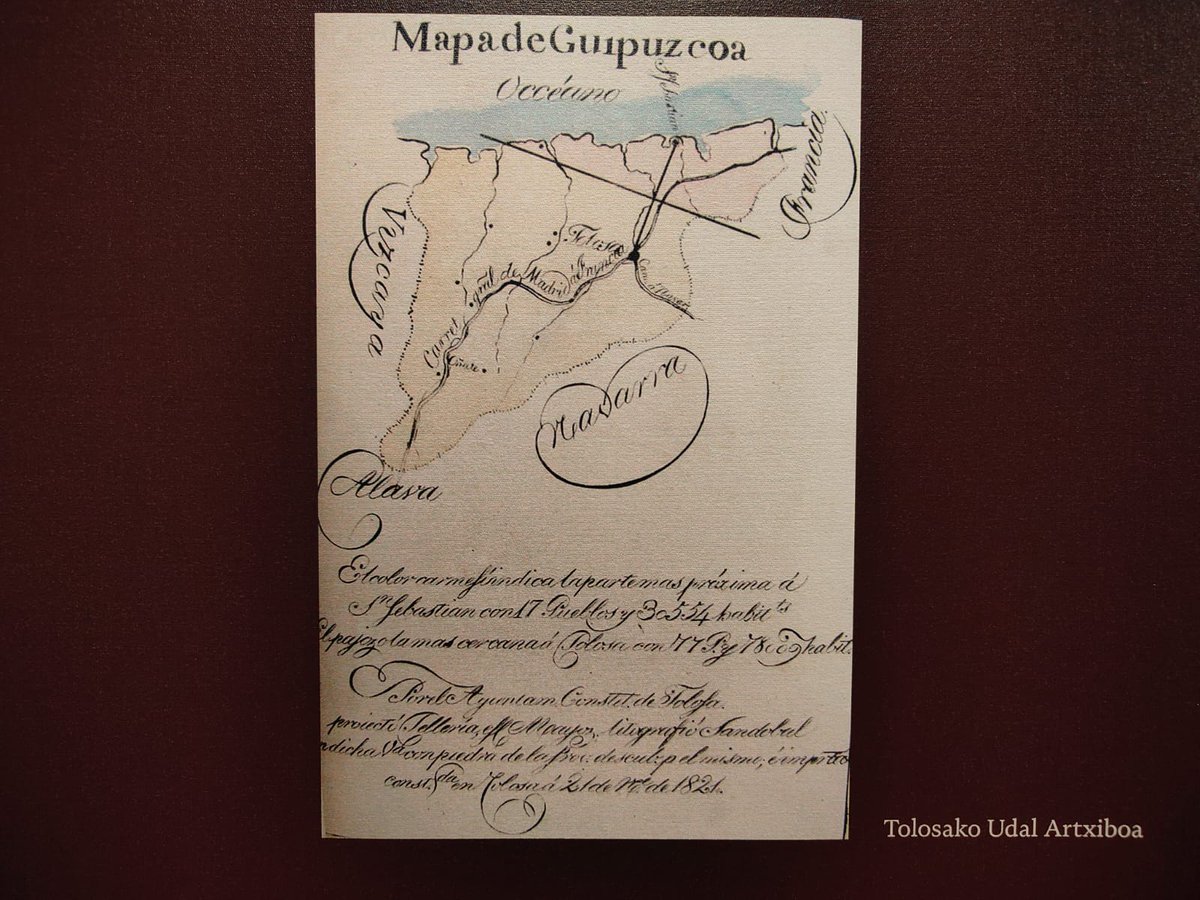 Mapa de Guipuzcoa
Occéano
Sn Sebastian
Francia
Vizcaya
Tolosa
Carret gral de Madrid á Francia
Oñate
Navarra
Alava
El color carmesí indica la parte mas próxima á
Sn Sebastian con 17 Pueblos y 30554 habits
El pajizo la mas cercana á Tolosa con 77 Ps y habit.
Por el Ayuntam. Constit. de Tolosa.
proiectó Tellería, Mayor, litografió Sandobal
en dicha Va con piedra de la de scul. p el mismo; é
const. en Tolosa á 21 de de 1821.
Tolosako Udal Artxiboa